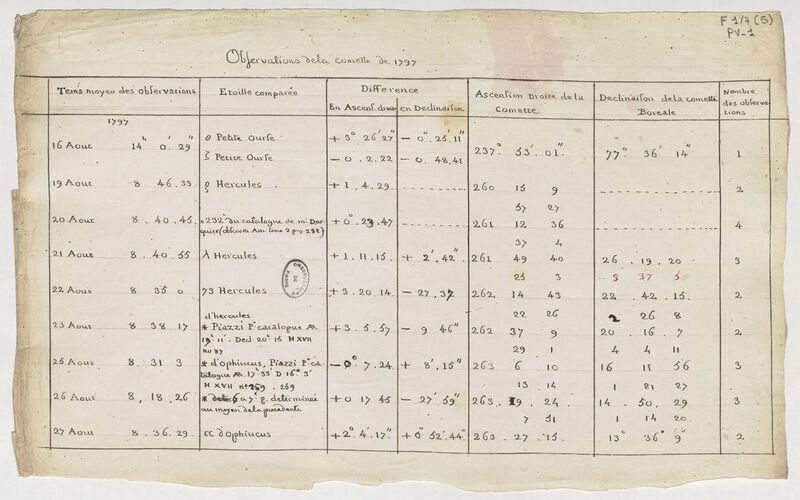 F 1/7 (5)
PV-1
Observations de la comette de 1797
Tems moyen des observations Etoille comparée Difference Ascension Droite de la Comette Declinaison de la comette Boreale Nombre des observations
En Ascens. droite en Declinaison
1797
16 Aout 14h 0' 29" θ Petite Ourse + 3° 26' 27" − 0° 25' 11" 237° 53' 01" 77° 36' 14" 1
ζ Petite Ourse − 0. 2. 22 − 0. 48. 41
19 Aout 8. 46. 33 ρ Hercules + 1. 4. 29. 260 15 9 2
57 27
20 Aout 8. 40. 45. * 232 du catalogue de m. Darquier (observ. Am. tome 2 pag. 282) + 0° 29. 47 261 12 36 4
37 4
21 Aout 8. 40. 55 λ Hercules + 1. 11. 15 + 2', 42" 261 49 40 26. 19. 20 3
25 3 3 37 5
OBSERVATOIRE DE PARIS
22 Aout 8. 35 0 73 Hercules + 3. 20. 14 − 27, 37 262. 14 43 22. 42. 15. 2
22 26 2 26 8
d'hercules
23 Aout 8 38 17 * Piazzi Pt catalogue AR + 3. 5. 57 − 9 46" 262 37 9 20. 16 7 2
19' 11". Decl. 20° 15 H XVII
no 87
29 1 4 4 11
25 Aout 8. 31 3 * d'ophiucus, Piazzi Pt catalogue AR. 17° 33' D 16° 3' − 0° 7. 24 + 8', 15" 263 6 10 16 11 56 3
H XVII No 259. 259
13 14 1 21 27
26 Aout 8, 18, 26 a 7e g. determinée au moyen de la precedente + 0 17 45 − 27' 59" 263. 19. 24. 14. 50. 29 3
7 51 1 14 20
27 Aout 8. 36. 29. α d'Ophiucus + 2° 4' 17" + 0° 52' 44" 263. 27. 15. 13° 36' 9" 2